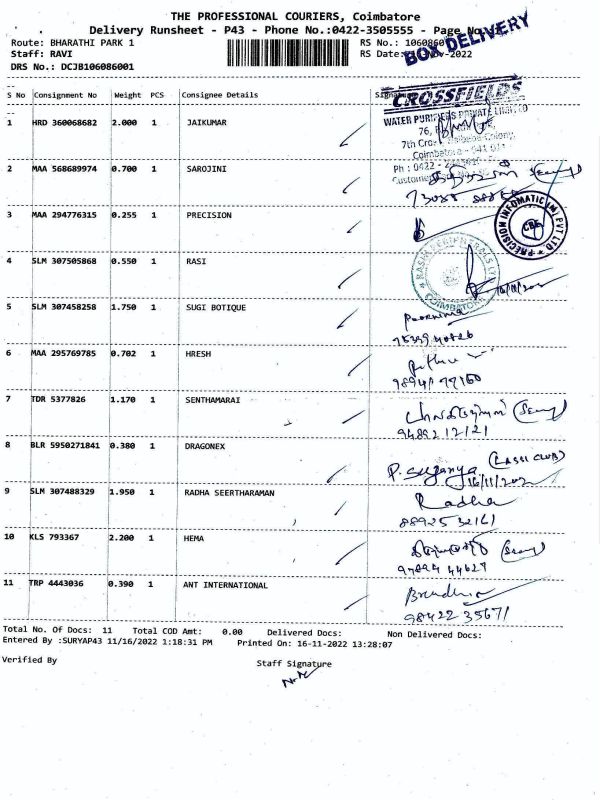 THE PROFESSIONAL COURIERS, Coimbatore
Delivery Runsheet - P43 - Phone No.:0422-3505555 - Page
BOX DELIVERY
Route: BHARATHI PARK 1
RS No.: 1060860
Staff: RAVI
RS Date: -Nov-2022
DRS No.: DCJB106086001
S No Consignment No Weight PCS Consignee Details Signature
CROSSFIELDS
WATER PURIFIERS PRIVATE LIMITED
1 HRD 360068682 2.000 1 JAIKUMAR
76,
7th Cross Colony,
Coimbatore - 641 011
Ph : 0422 -
2 MAA 568689974 0.700 1 SAROJINI
3 MAA 294776315 0.255 1 PRECISION
PRECISION INFOMATIC (M) PVT LTD
CBE
4 SLM 307505868 0.550 1 RASI
COIMBATORE
5 SLM 307458258 1.750 1 SUGI BOTIQUE
Poornima
6 MAA 295769785 0.702 1 HRESH
7 TDR 5377826 1.170 1 SENTHAMARAI
94892 12121
8 BLR 5950271841 0.380 1 DRAGONEX
(LASSI CLUB)
P. Suganya
16/11/202
9 SLM 307488329 1.950 1 RADHA SEERTHARAMAN
Radha
88925 32161
10 KLS 793367 2.200 1 HEMA
97894 44627
11 TRP 4443036 0.390 1 ANT INTERNATIONAL
98422 35671
Total No. Of Docs: 11 Total COD Amt: 0.00 Delivered Docs: Non Delivered Docs:
Entered By :SURYAP43 11/16/2022 1:18:31 PM Printed On: 16-11-2022 13:28:07
Verified By
Staff Signature